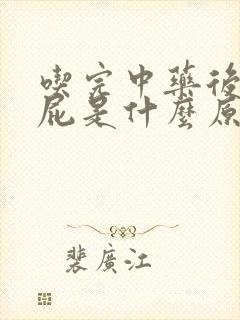 喫完中藥後
屁是什麼原
裴廣江